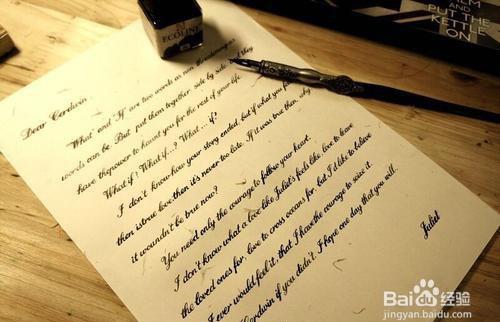 ECOLINE
CALM
AND
PUT THE
KETTLE
ON
Dear Cerdwin
"What" and "If" are two words as non
words can be. But put them together, side by side and they
have thepower to haunt you for the rest of your life
What if? What if...? What...if?
I don't know how your story ended, but if what you
then istrue love then it's never too late. If it was true then, why
it woundn't be true now?
You need only the courage to follow your heart.
I don't know what a love like Juliet's feels like, love to leave
the loved ones for, love to cross oceans for, but I'd like to believe
I ever would feel it, that I have the courage to seize it.
Cerdwin if you didn't, I hope one day that you will.
Juliet
Baidu 经验
jingyan.baidu.com